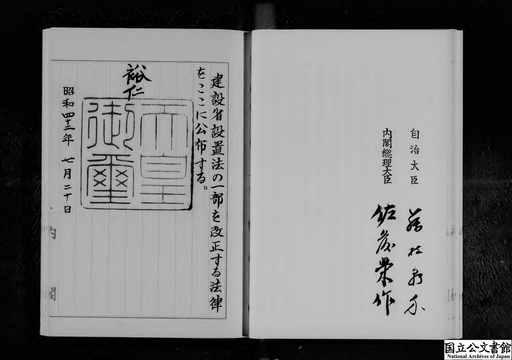 自治大臣 藤枝泉介
内閣総理大臣 佐藤榮作
建設省設置法の一部を改正する法律
をここに公布する。
裕仁
天皇
御璽
昭和四十二年 七月二十日
内閣
国立公文書館
National Archives of Japan